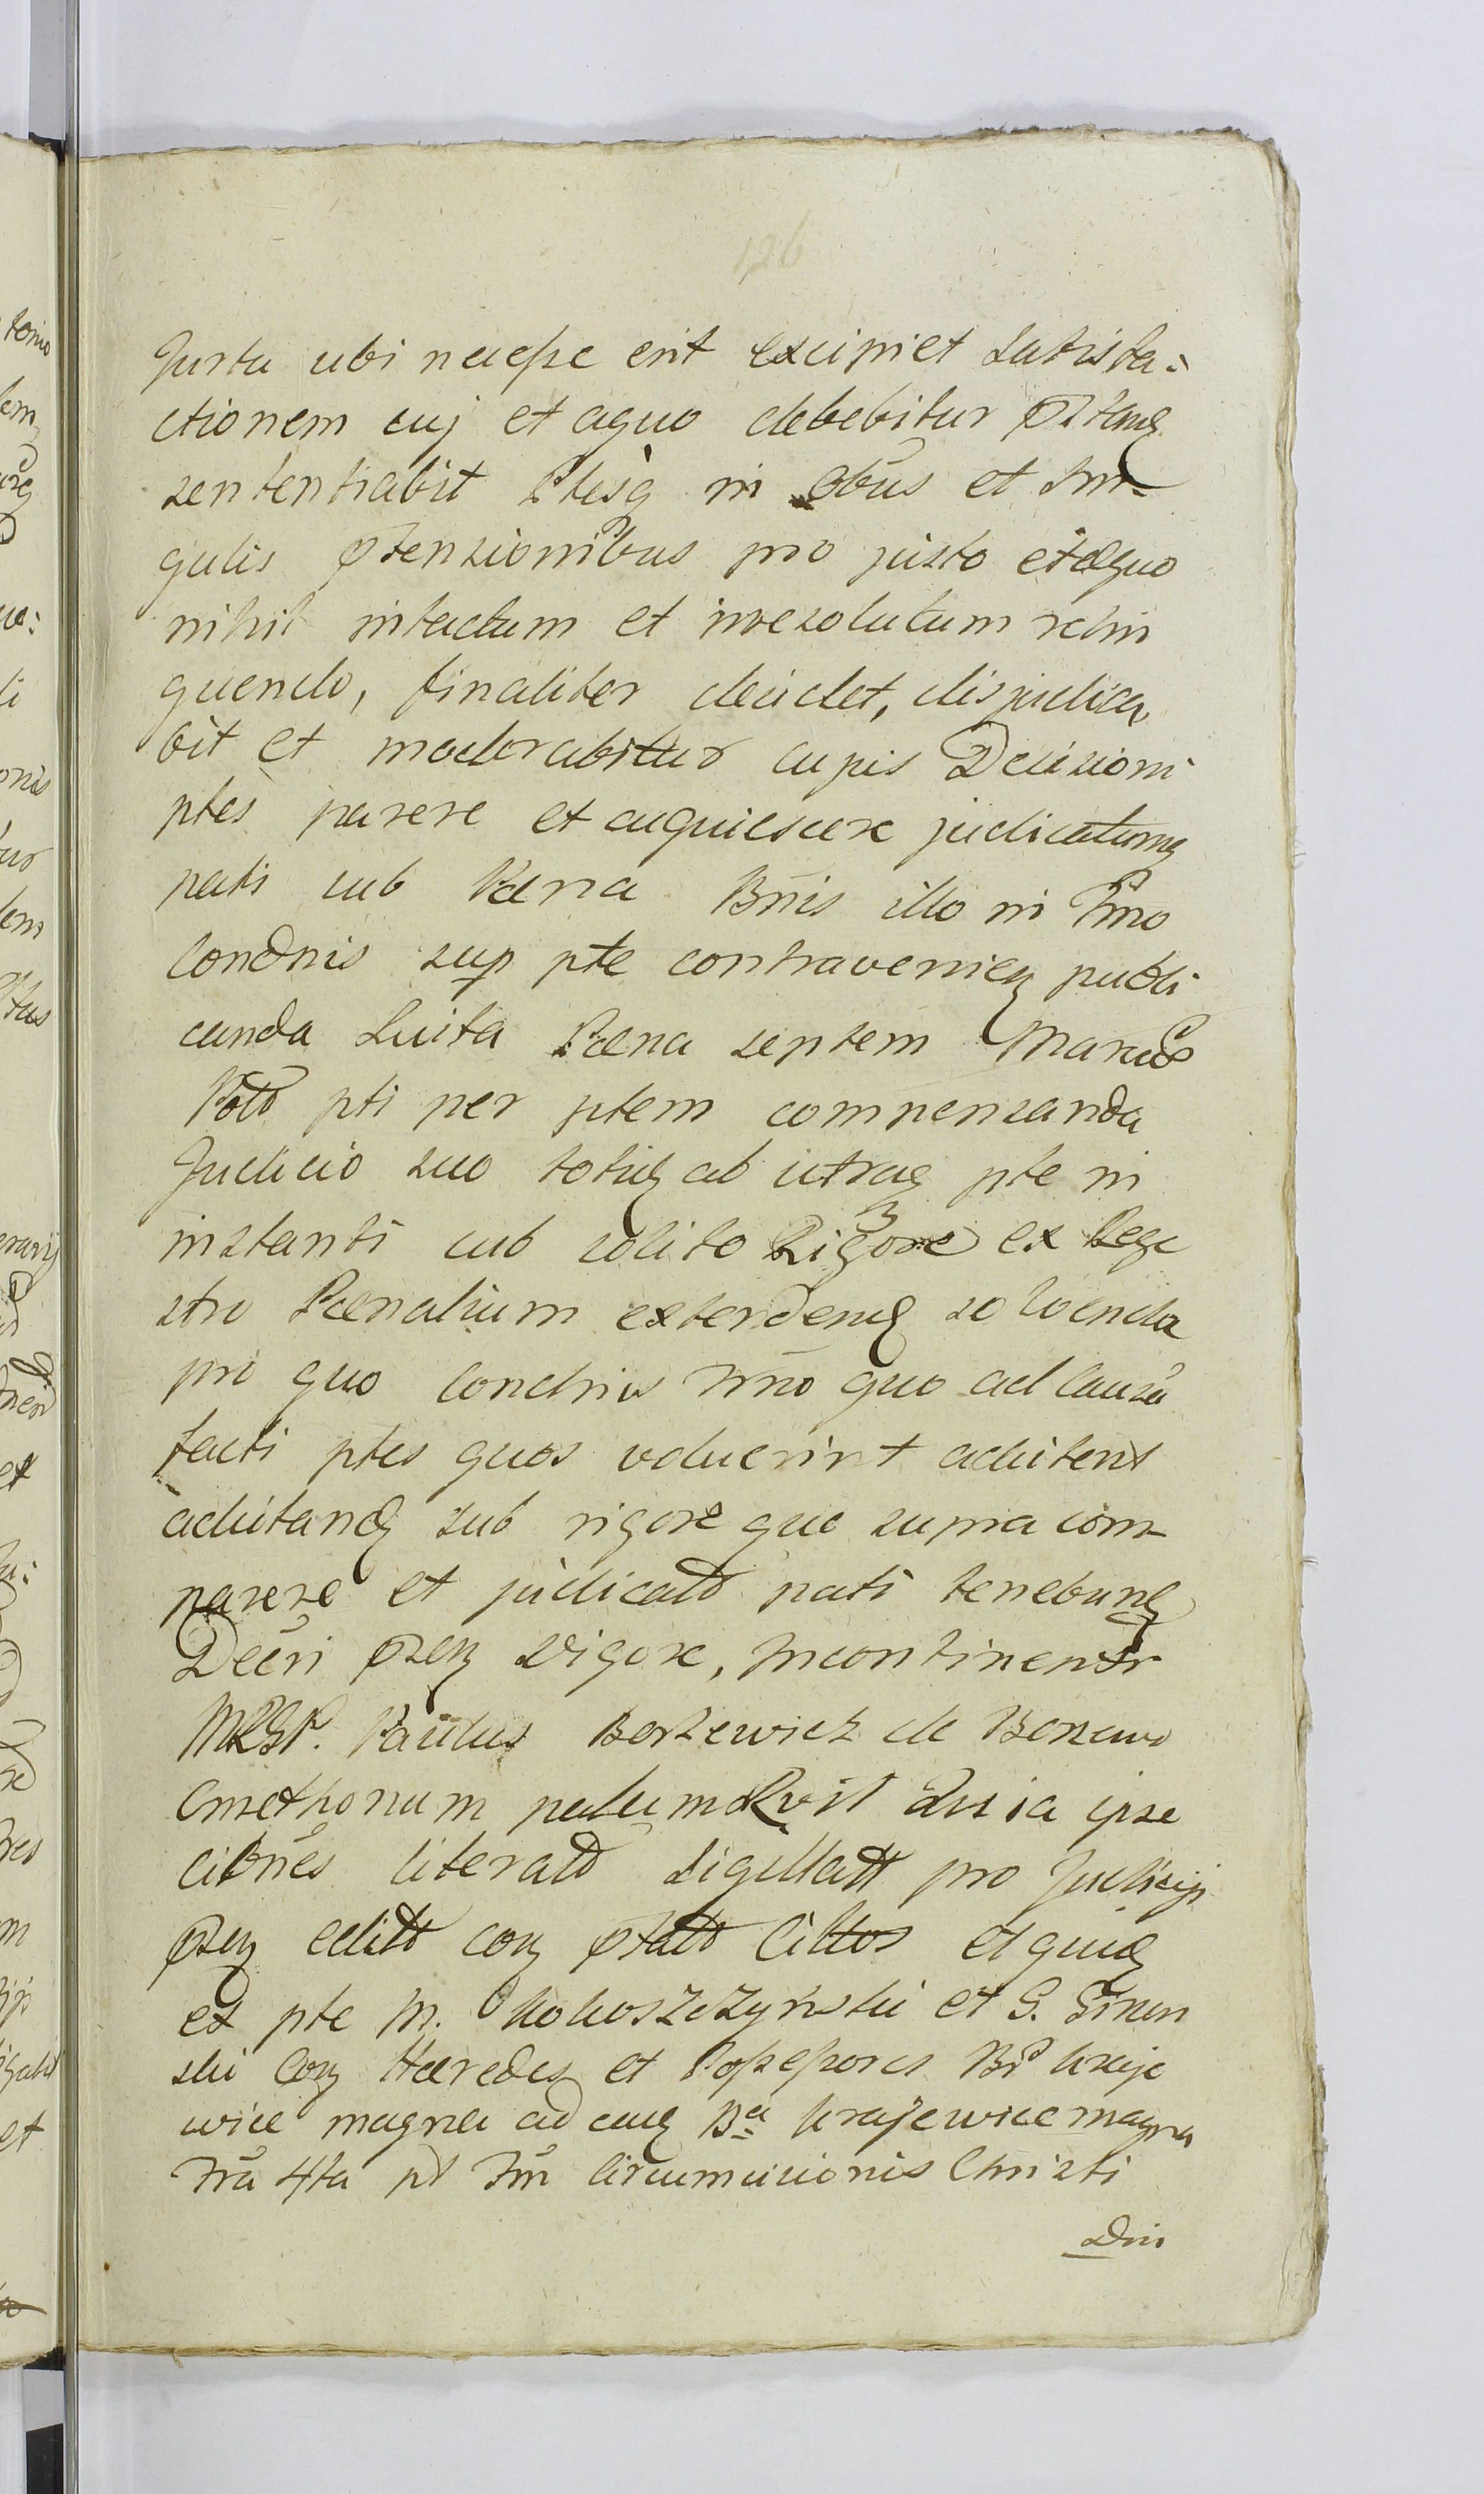 126
Justa ubi necesse erit excipiet Satisfa:
ctionem cuj et aquo debebitur
sententiabit Ptesq in obus et Sin-
gulis Ptensionibus pro justo et æquo
nihil intactum et irresolutum relin
quendo, finaliter decidet, disjudica
bit et moderabitur cujus Decisioni
ptes parere et acquiescere judicatumq
pati sub Pæna Bnis illo in Tmo
Condnis sup pte contravenien publi
canda Luita Pæna septem Marcas
Potd pti per ptem compensanda
Judicio suo totid ab utraq pte in
instanti sub solito Rigore ex Rege
stro Pænalium extenden solvenda
pro quo Condnis Tmo quo ad Causa
facti ptes quos voluerint addi­tent
adcitand sub rigore quo supra com-
parere et judicatd pati tenebun
Decri Psen Vigore, Incontinentr
MRGP. Paulus Borzewicz de Borzewo
Cmethonum palum Rvit Quia ipse
citnes literatd Sigillatt pro Judicijs
Psen editd con Ptatd Cittos et quid
ex pte M. Chokoszczynski et G. Ginen
ski Con Hæredes et Possessores Br Kraje
wice magna ad eand Ba Krajewice magna
Tra 4ta pt Tm Circumcisionis Christi
Dni